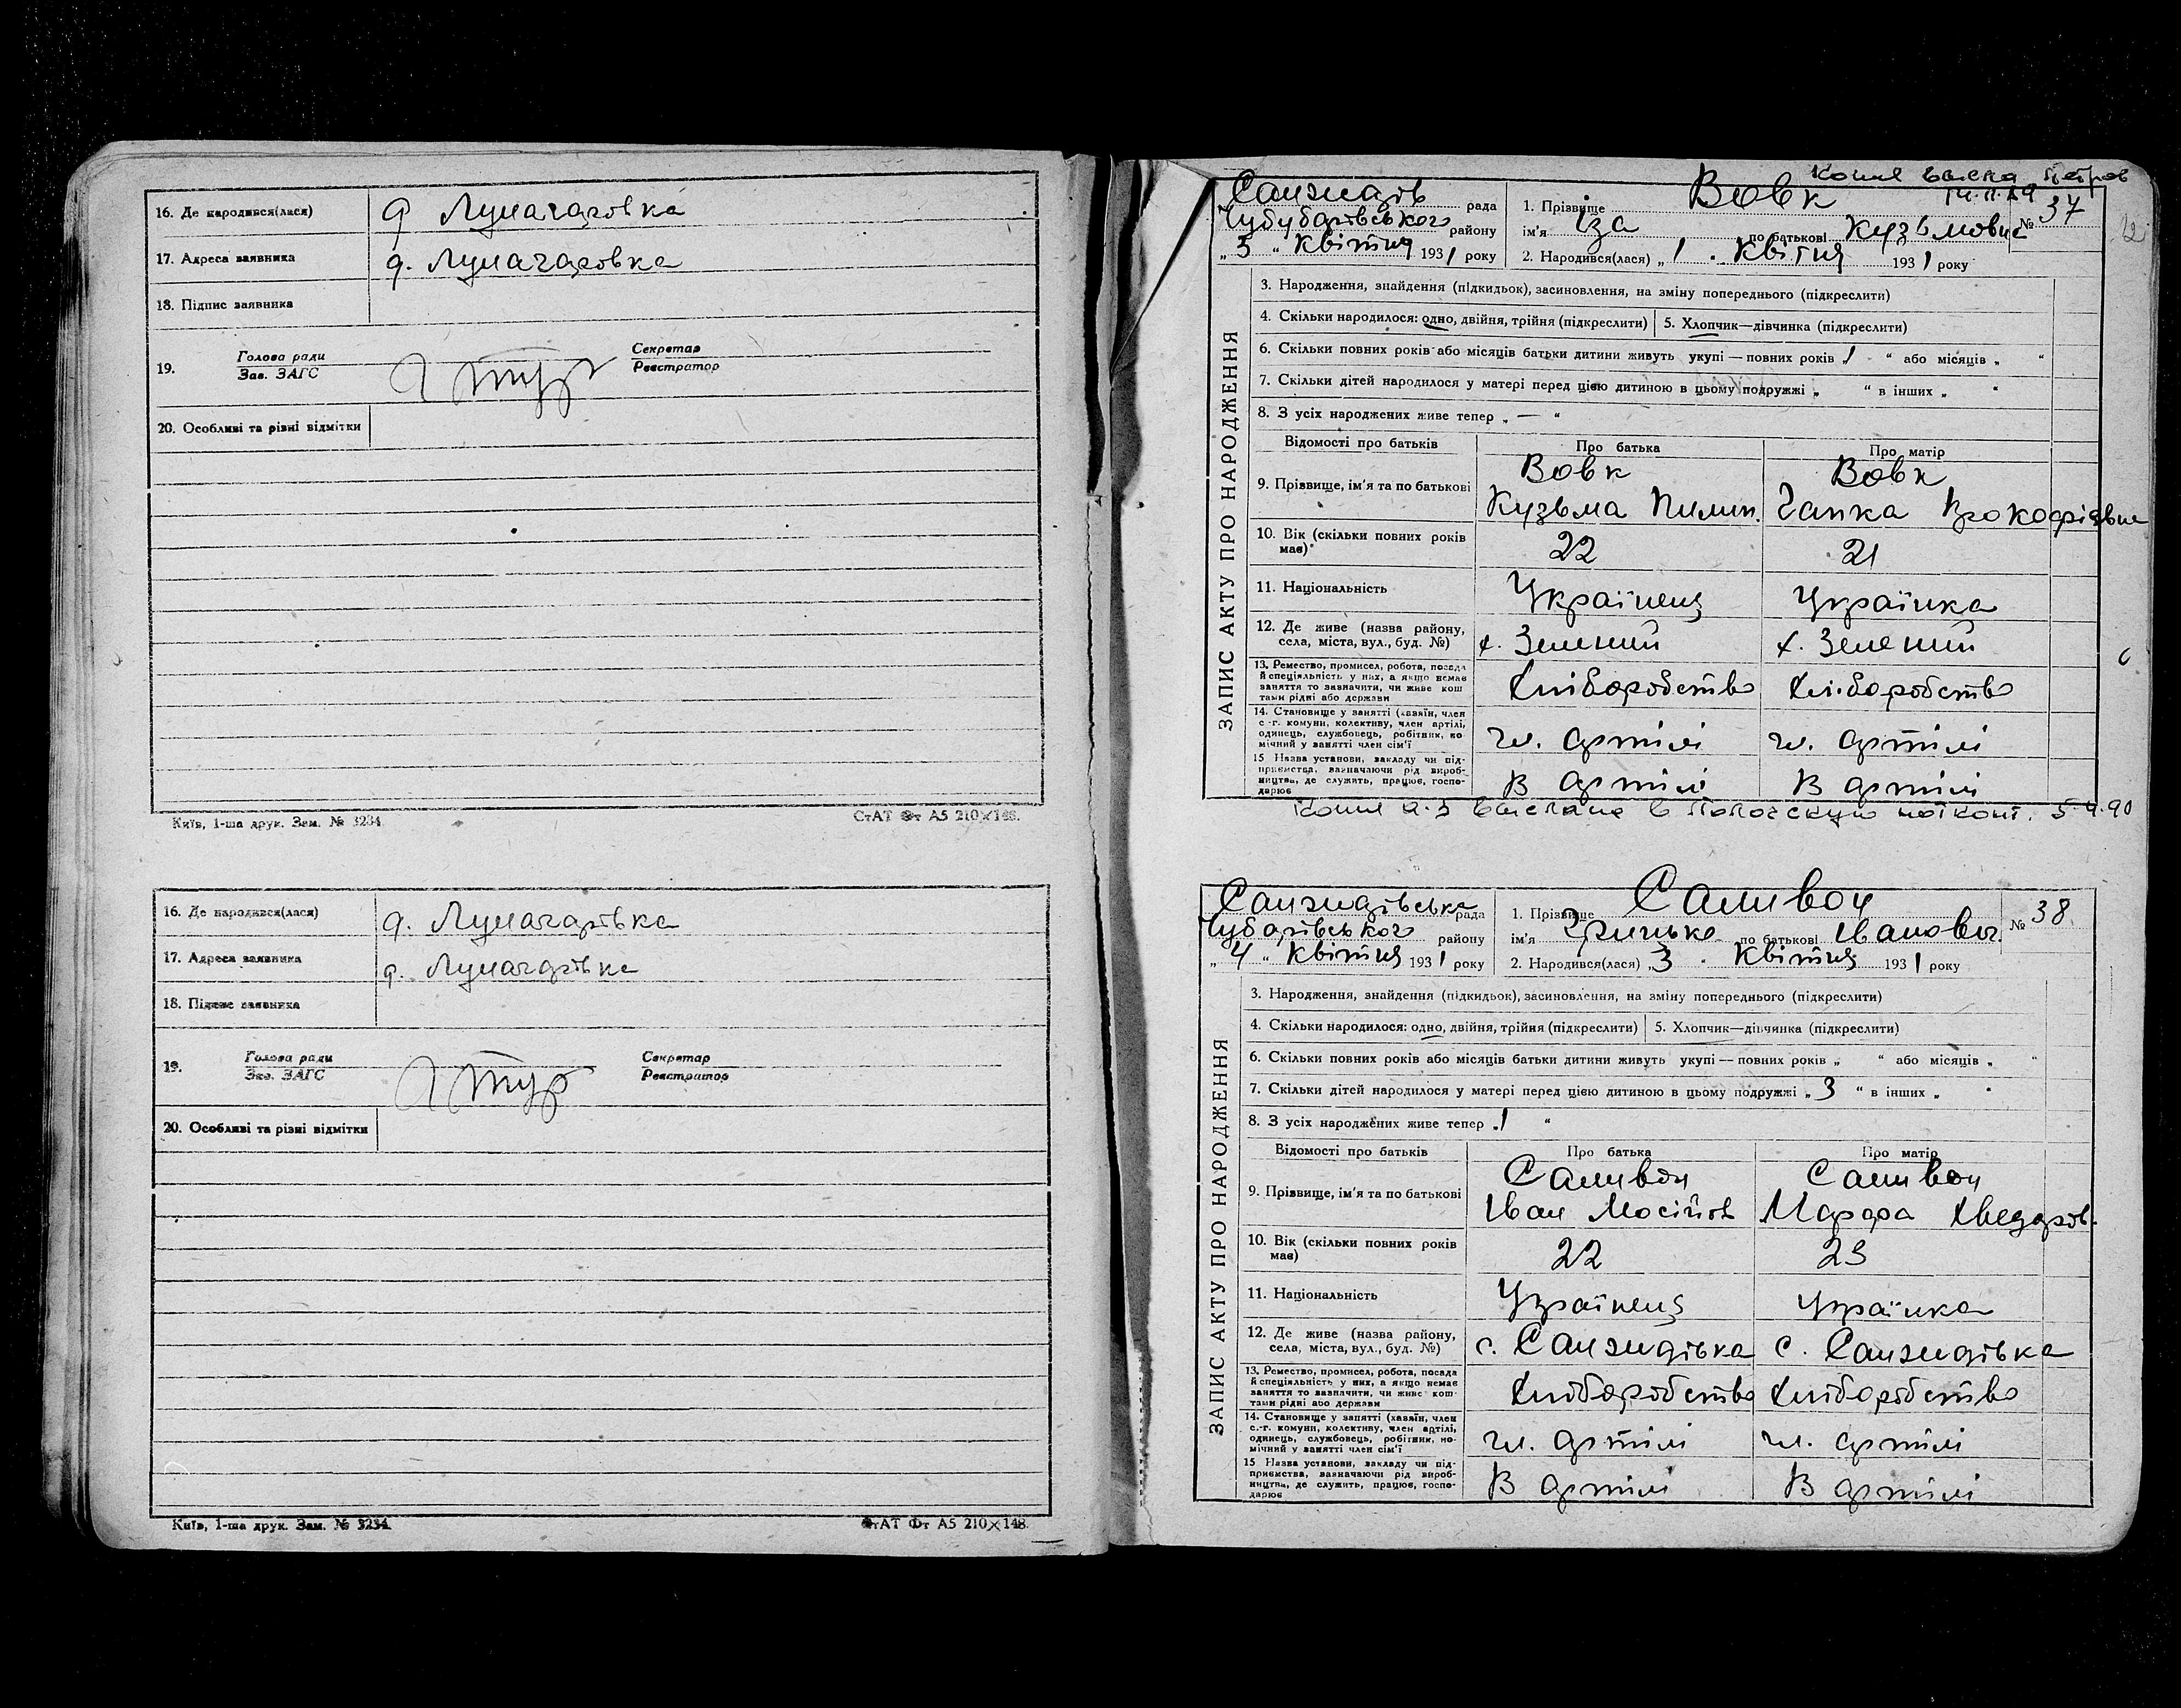 16. Де народився(лася) ф Луначаровка
17. Адреса заявника ф. Луначаровка
18. Підпис заявника
19. Голова ради
Зав. ЗАГС
Секретар
Реєстратор
20. Особливі та різні відмітки
Київ, 1-ша друк. Зам. № 3234
СтАТ Фт А5 210×148.
16. Де народився(лася) ф. Луначарівка
17. Адреса заявника ф. Луначарівка
18. Підпис заявника
19. Голова ради
Зав. ЗАГС
Секретар
Реєстратор
20. Особливі та різні відмітки
Київ, 1-ша друк. Зам. № 3234
СтАТ Фт А5 210×148.
рада
району
„ 5 “ Квітня 1931 року
1. Прізвище Вовк
ім'я Іза по батькові Кузьмович
№ 37
2. Народився(лася) „ 1 “ Квітня 1931 року
ЗАПИС АКТУ ПРО НАРОДЖЕННЯ
3. Народження, знайдення (підкидьок), засиновлення, на зміну попереднього (підкреслити)
4. Скільки народилося: одно, двійня, трійня (підкреслити) 5. Хлопчик—дівчинка (підкреслити)
6. Скільки повних років або місяців батьки дитини живуть укупі — повних років „ 1 “ або місяців „ “
7. Скільки дітей народилося у матері перед цією дитиною в цьому подружжі „ “ в інших „ “
8. З усіх народжених живе тепер „ — “
Відомості про батьків Про батька Про матір
9. Прізвище, ім'я та по батькові Вовк Вовк
Кузьма Пилип. Ганка Прокофіївна
10. Вік (скільки повних років має) 22 21
11. Національність Українець Українка
12. Де живе (назва району, села, міста, вул., буд. №) х. Зелений х. Зелений
13. Ремество, промисел, робота, посада й спеціяльність у них, а якщо немає заняття то зазначити, чи живе коштами рідні або держави Хліборобство Хліборобство
14. Становище у занятті (хазяїн, член с.-г. комуни, колективу, член артілі, одинець, службовець, робітник, помічний у занятті член сім'ї чл. артілі чл. артілі
15 Назва установи, закладу чи підприємства, зазначаючи рід виробництва, де служить, працює, господарює В артілі В артілі
5.4.90
рада
Чубарівського району
„ 4 “ Квітня 1931 року
1. Прізвище Саливон
ім'я Грицько по батькові Іванович
№ 38
2. Народився(лася) „ 3 “ Квітня 1931 року
ЗАПИС АКТУ ПРО НАРОДЖЕННЯ
3. Народження, знайдення (підкидьок), засиновлення, на зміну попереднього (підкреслити)
4. Скільки народилося: одно, двійня, трійня (підкреслити) 5. Хлопчик—дівчинка (підкреслити)
6. Скільки повних років або місяців батьки дитини живуть укупі — повних років „ “ або місяців „ “
7. Скільки дітей народилося у матері перед цією дитиною в цьому подружжі „ 3 “ в інших „ “
8. З усіх народжених живе тепер „ 1 “
Відомості про батьків Про батька Про матір
9. Прізвище, ім'я та по батькові Саливон Саливон
Іван Мосійов Марфа Хведоров.
10. Вік (скільки повних років має) 22 23
11. Національність Українець Українка
12. Де живе (назва району, села, міста, вул., буд. №) с. Санжидівка с. Санжидівка
13. Ремество, промисел, робота, посада й спеціяльність у них, а якщо немає заняття то зазначити, чи живе коштами рідні або держави Хліборобство Хліборобство
14. Становище у занятті (хазяїн, член с.-г. комуни, колективу, член артілі, одинець, службовець, робітник, помічний у занятті член сім'ї чл. артілі чл. артілі
15 Назва установи, закладу чи підприємства, зазначаючи рід виробництва, де служить, працює, господарює В артілі В артілі